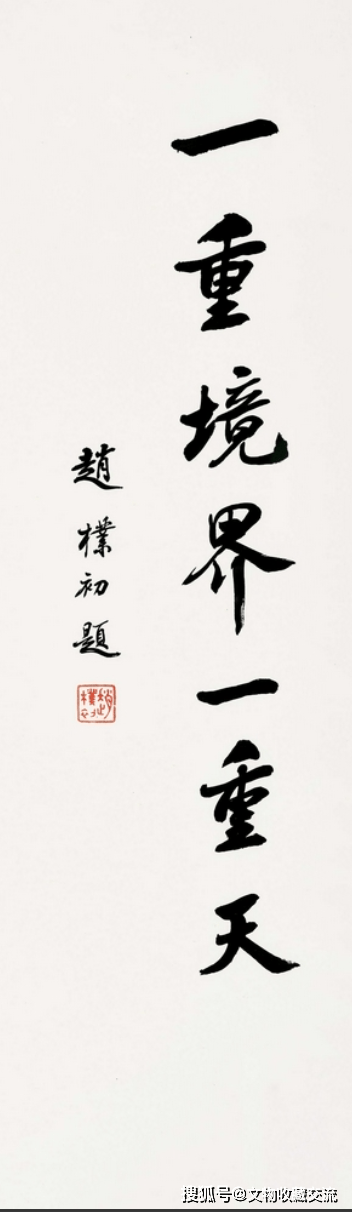 一重境界一重天
趙樸初題
搜狐号@文物收藏交流